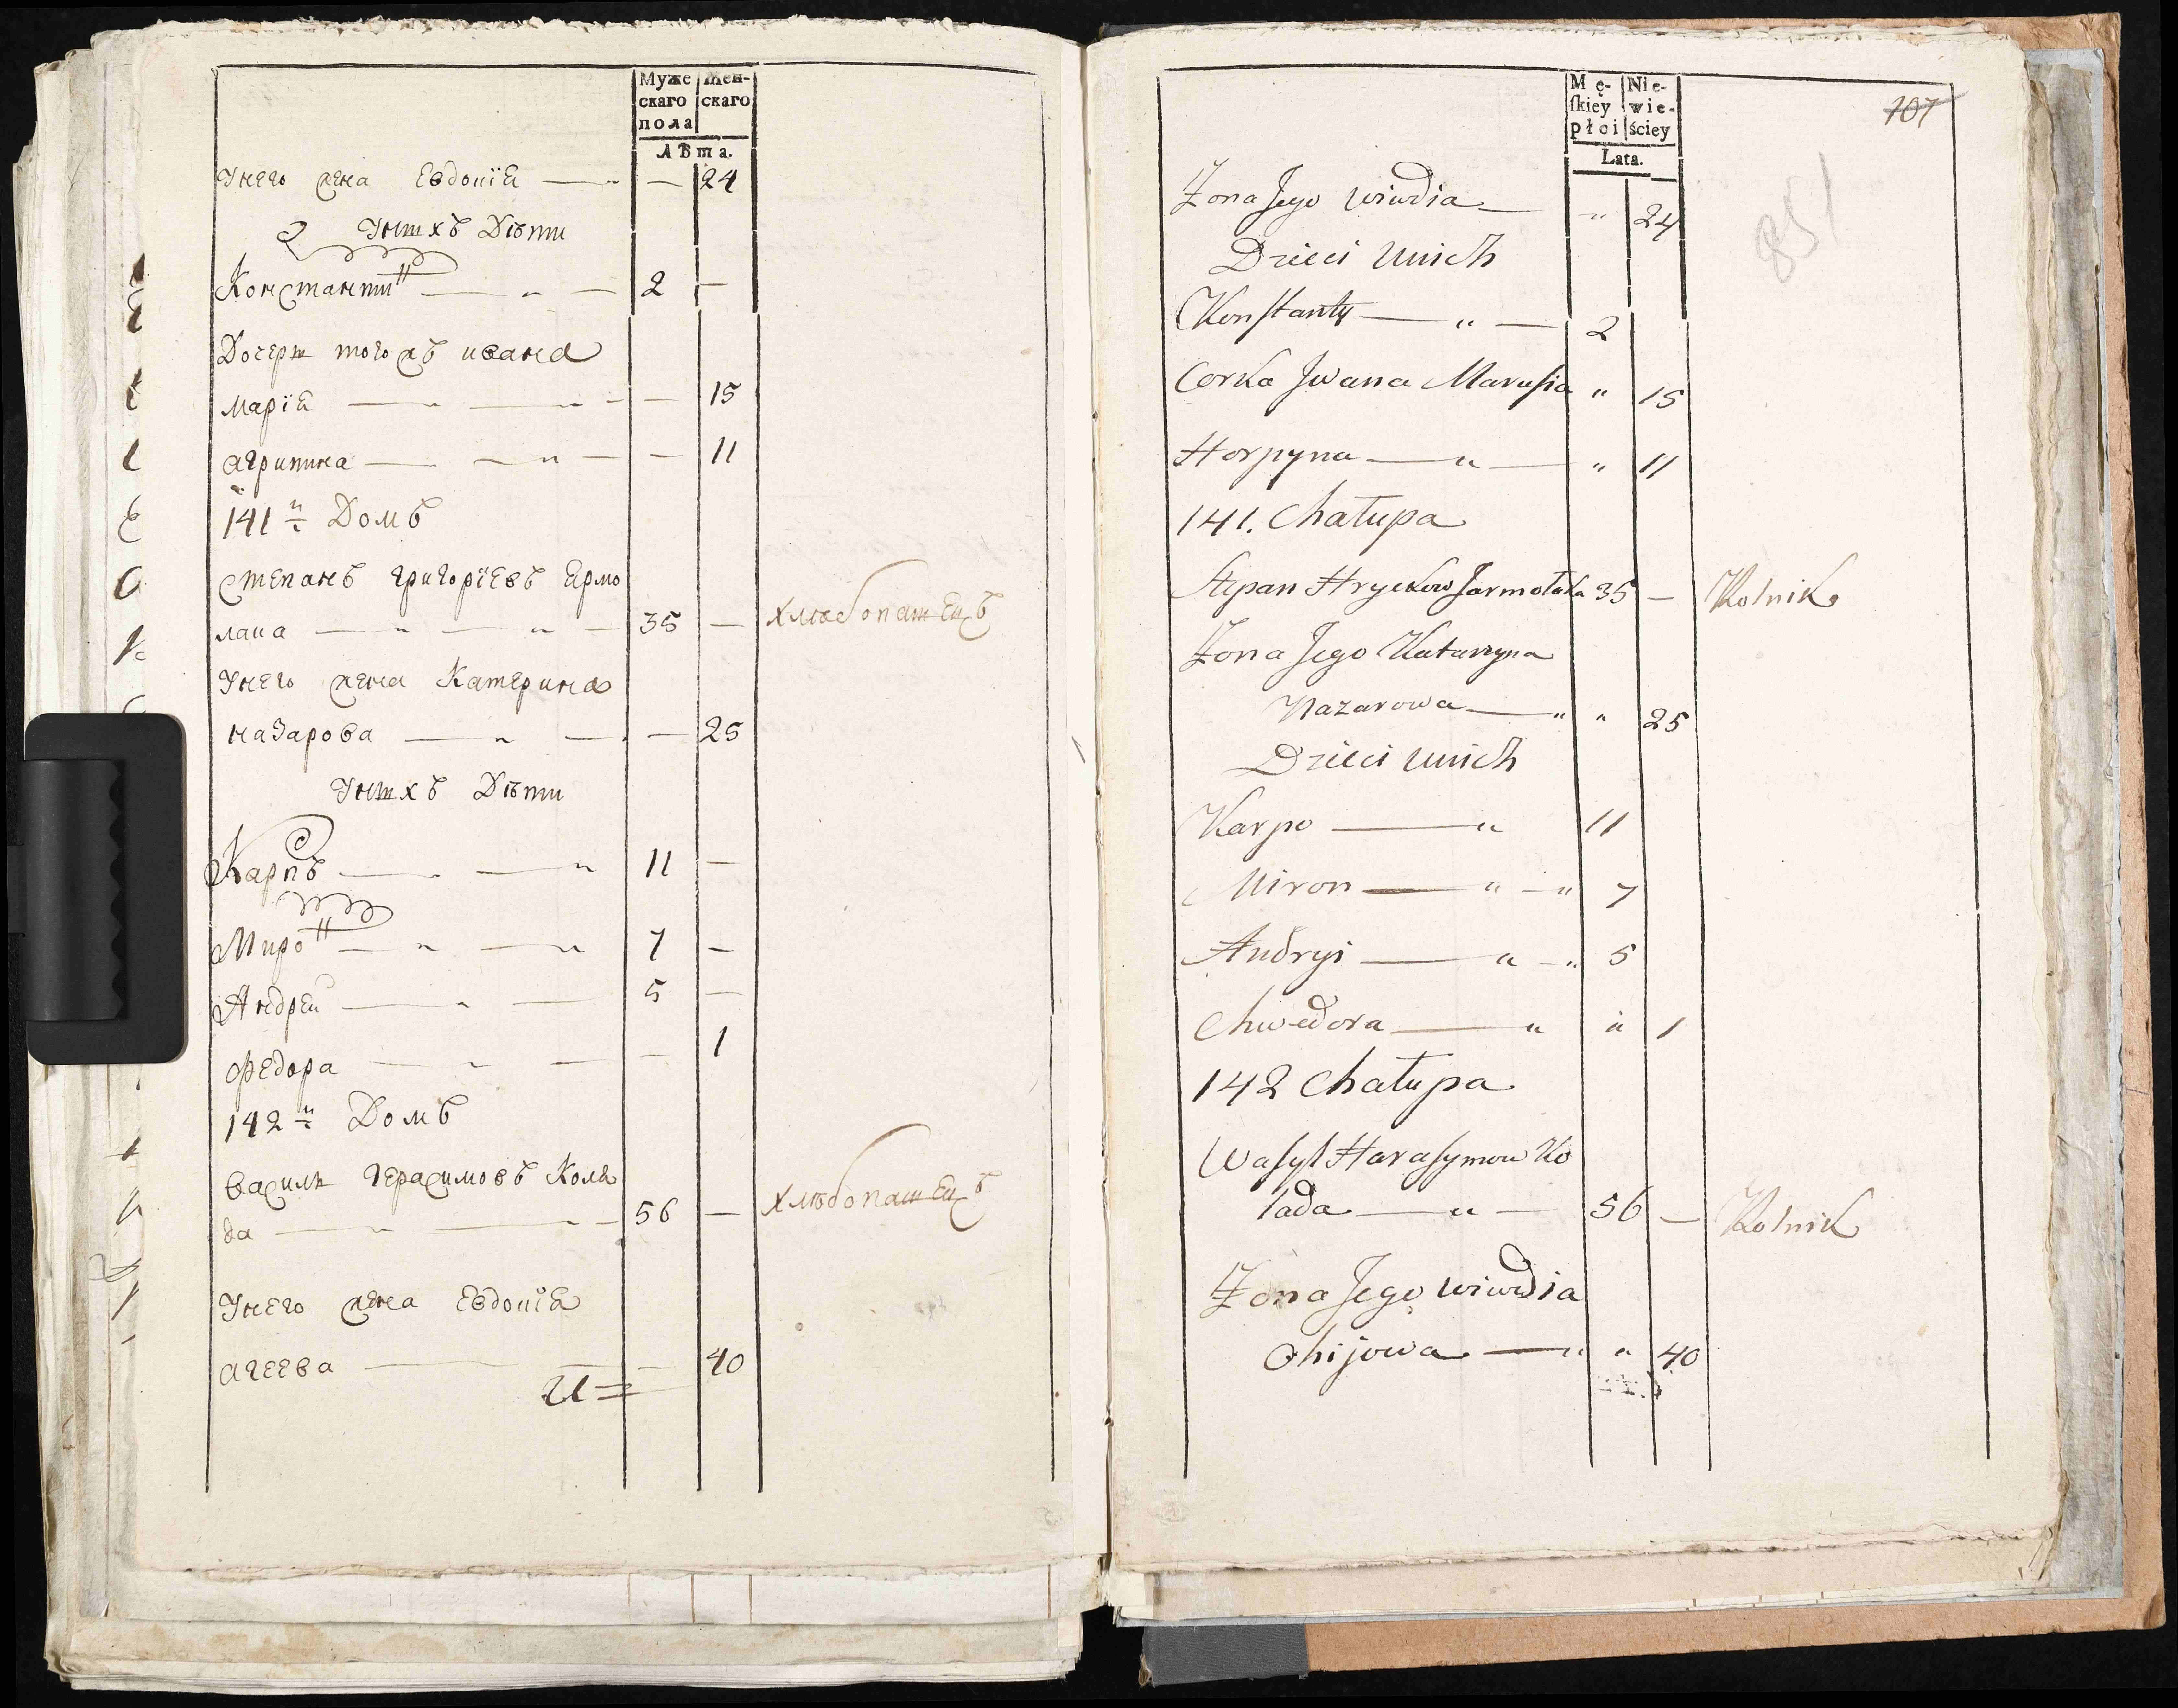 Муже Жен-
скаго скаго
пола
Лѣта.
Унего жена Евдокія — — 24
Унихъ Дѣти
Константин — „ — 2 —
Дочери тогожъ ивана
Марія — „ — „ — — 15
агрипина — — „ — — 11
141й Домъ
Степанъ григоріевъ Ярмо
лака — „ — „ — 35 — хлѣбопашецъ
Унего жена Катерина
назарова — „ — — 25
Унихъ Дѣти
Карпъ — „ — „ 11 —
Мирон — „ — „ 7 —
Андрей — „ — 5 —
федора — „ — — 1
142й Домъ
василь герасимовъ Коля
да — „ — „ — 56 — хлѣбопашецъ
Унего жена Евдокія
агеева — — 40
Mę- Nie-
ſkiey wie-
płci ściey
Lata.
107
851
Żona Jego Wiwdia — „ 24
Dzieci Unich
Konſtanty — „ — 2
Corka Jwana Maruſia „ 15
Horpyna — „ — „ 11
141. Chałupa
Stepan Hryckow Jarmołaka 35 — Rolnik
Żona Jego Katarzyna
Nazarowa — „ „ 25
Dzieci Unich
Karpo — „ 11
Miron — „ — „ 7
Andryi — „ — „ 5
Chwedora — „ „ 1
142 Chałupa
Waſyl Haraſymow Ko
lada — „ — 56 — Rolnik
Żona Jego Wiwdia
Ohijowa — „ „ 40